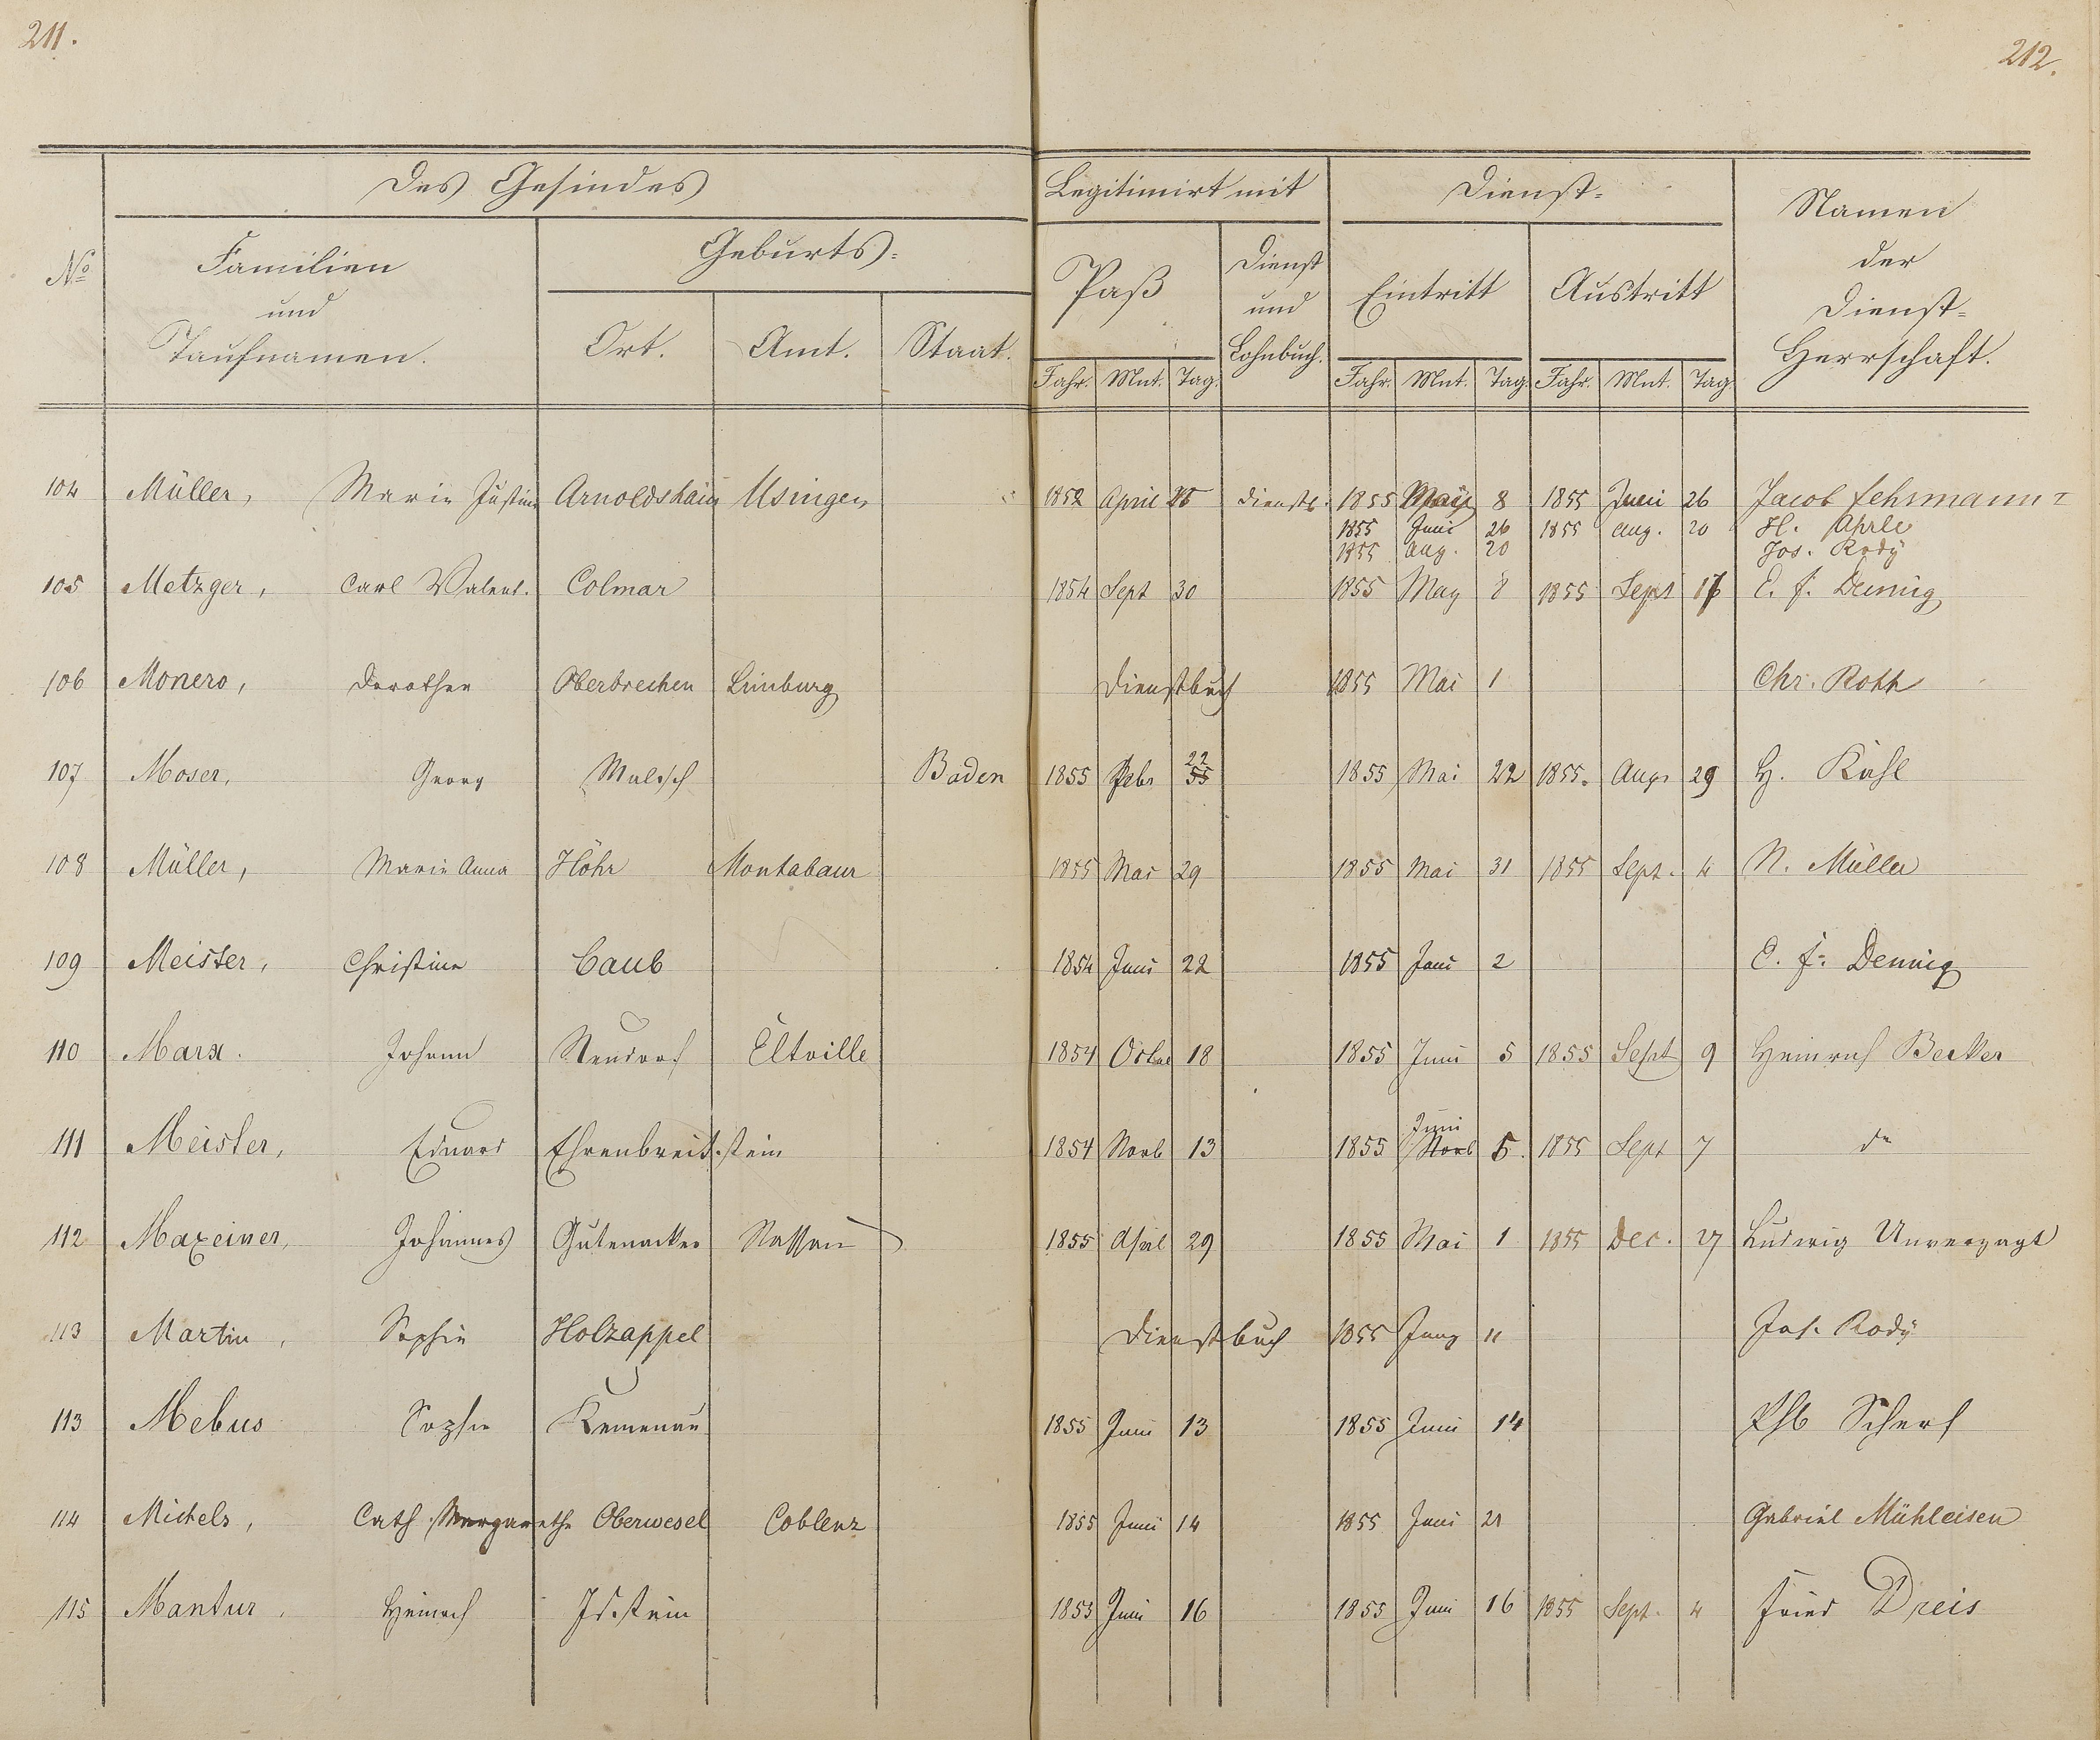 211.
212.
Des Gesindes
Legitimirt mit
Dienst-
Namen der Dienst-Herrschaft.
No
Familien und Taufnamen.
Geburts-
Paß
Dienst und Lohnbuch.
Eintritt
Austritt
Ort. Amt. Staat.
Jahr. Mnt. Tag. Jahr. Mnt. Tag. Jahr. Mnt. Tag
104 Müller, Marie Justine Arnoldshain Usingen 1852 April Dienstb. 1855 8 1855 Juni 26 Jacob Fehrmann
1855 Juni 26 1855 Aug. 20 H.
1855 Aug. 20 Jos. Rody
105 Metzger, Carl Valent. Colmar 1854 Sept 30 1855 May 8 1855 Sept C. F. Deunig
106 Monero, Dorothea Oberbrechen Limburg Dienstbuch 1855 Mai 1 Chr. Roth
107 Moser, Georg Malsch Baden 1855 Febr 22 1855 Mai 22 1855. Aug. 29 H. Kahl
108 Müller, Marie Anna Höhr Montabaur 1855 Mai 29 1855 Mai 31 1855 Sept. 4 N. Müller
109 Meister, Christine Caub 1854 Juni 22 1855 Juni 2 C. F. Deunig
110 Marx. Johann Neudorf Eltville 1854 Octbr 18 1855 Juni 5 1855 Sept 9 Heinrich Becker
111 Meister, Eduard Ehrenbreitstein 1854 Novb 13 1855 Juni Novb 5. 1855 Sept 7 do
112 Maxeiner, Johannes Gutenacker Nassau 1855 April 29 1855 Mai 1 1855 Dec. 27 Ludwig Unverzagt
113 Martin, Sophie Holzappel Dienstbuch 1855 Juny 11 Jos. Rody
113 Mebus Sophie Kemenau 1855 Juni 13 1855 Juni 14 Phb Scherf
114 Michels, Cath. Margarethe Oberwesel Coblenz 1855 Juni 14 1855 Juni 21 Gabriel Mühleisen
115 Mantur, Heinrich Idstein 1853 Juni 16 1855 Juni 16 1855 Sept. 4 Fried Dreis